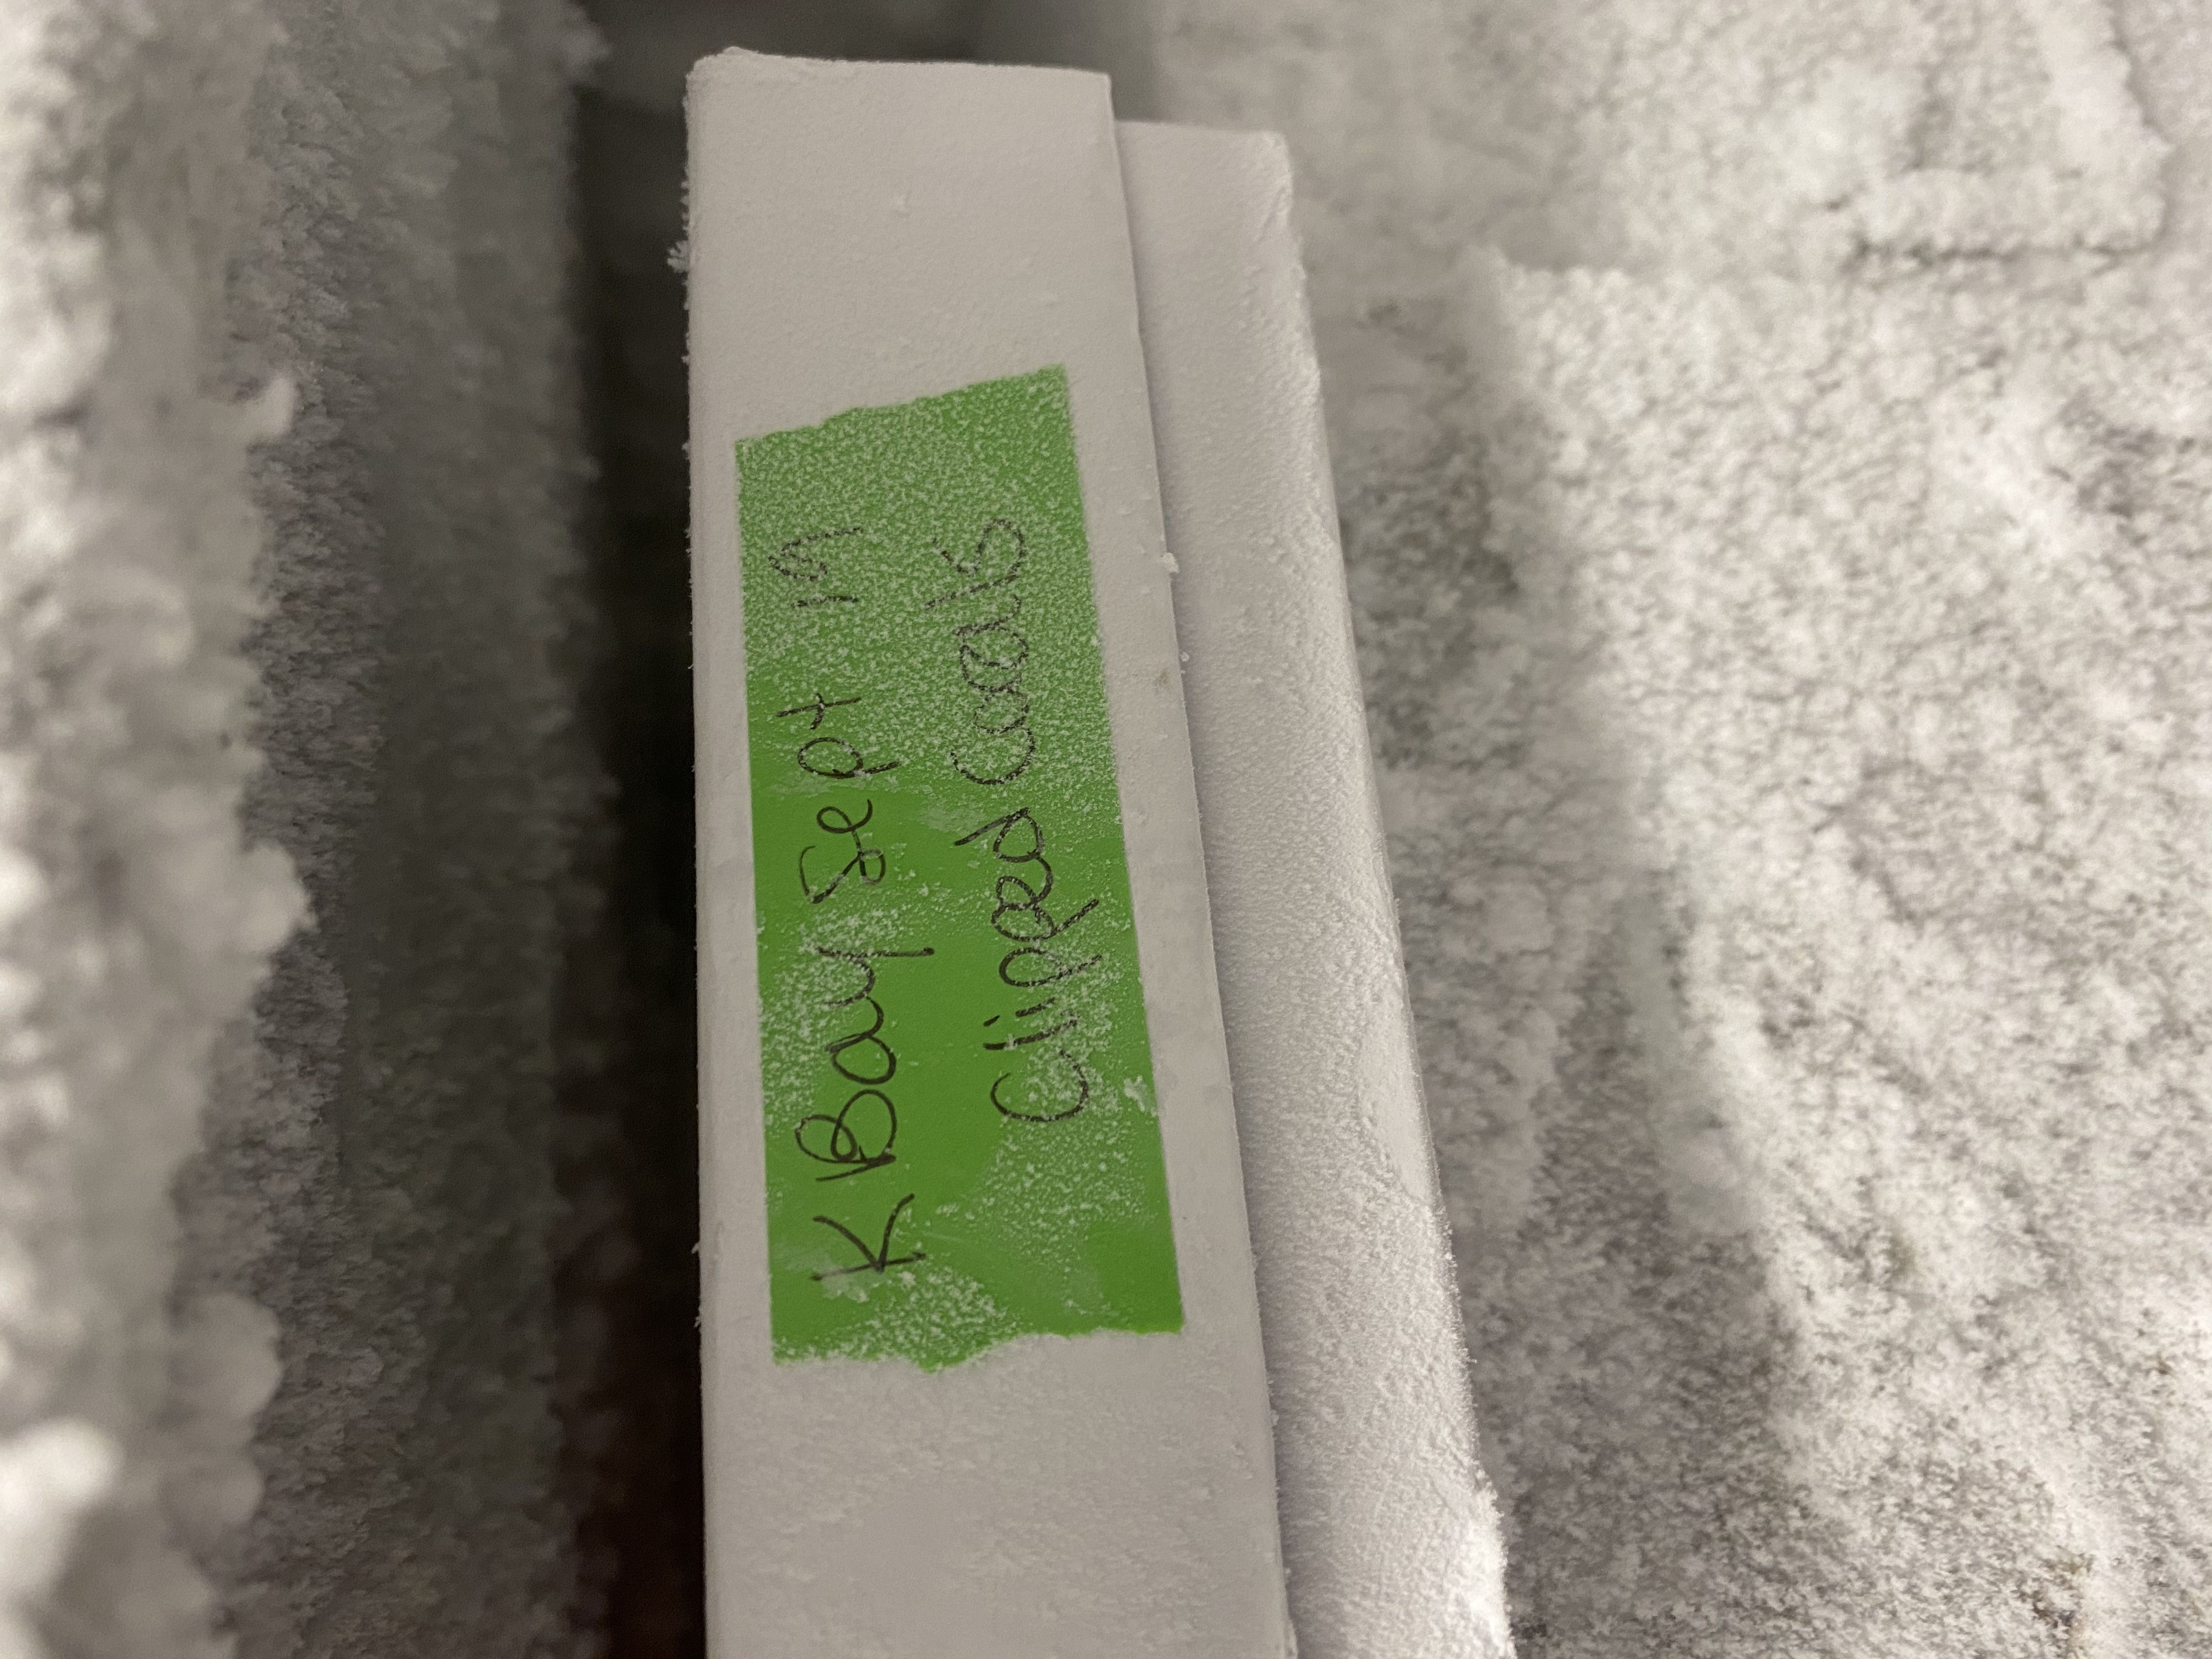 K Bay Sept 19
Clipped Corals